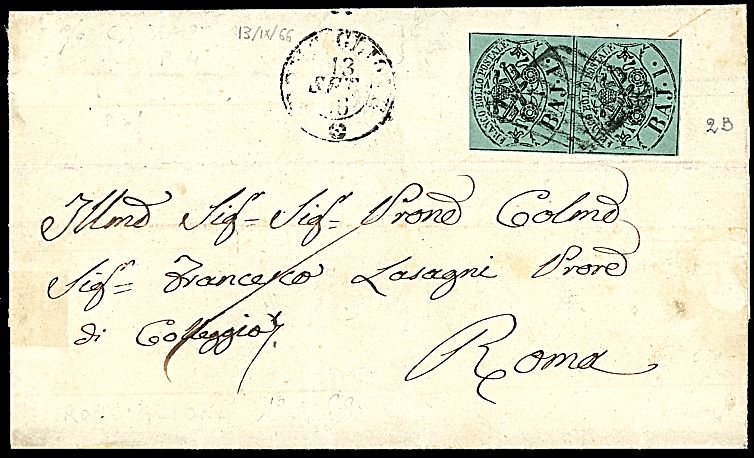 13/IX/66
13
SET
FRANCO BOLLO POSTALE
BAJ. 1
FRANCO BOLLO POSTALE
BAJ. 1
2B
Illmo Sigr= Sigr= Prone Colmo
Sigr= Francesco Lasagni Prore
di Colleggio
Roma